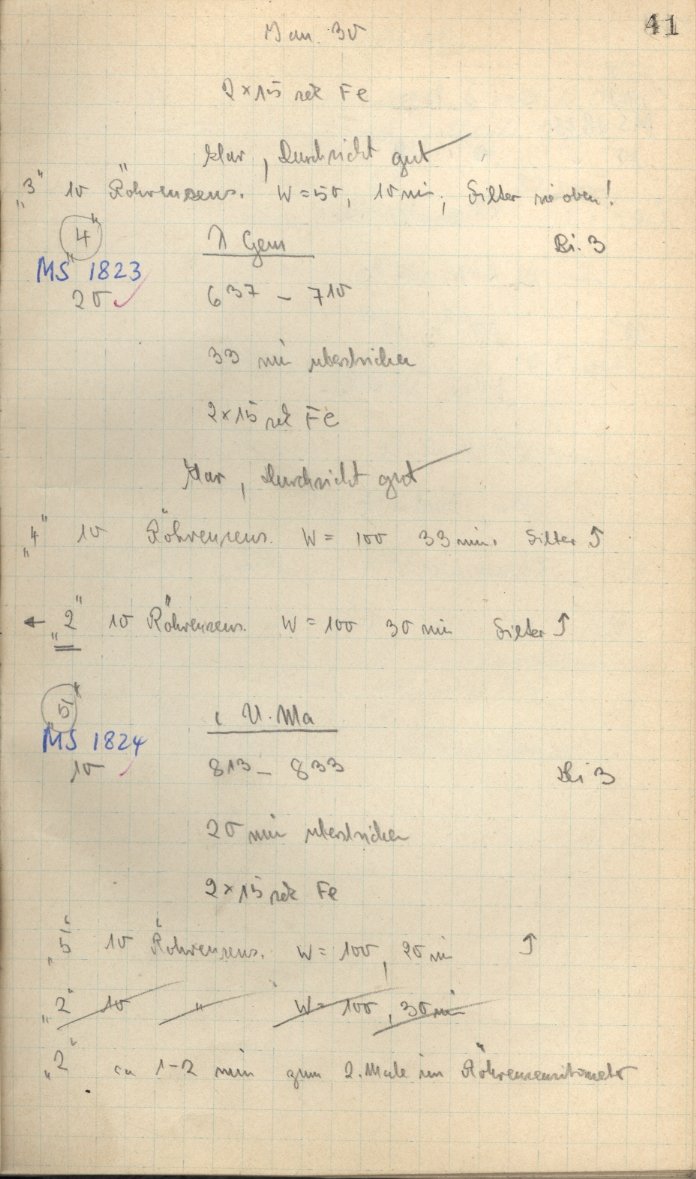 41
Jan. 30
2×15 sek Fe
klar, Durchsicht gut
"3" 10 Röhrensens. W=50, 10 min, Filter wie oben!
"4"
λ Gem
Bi. 3
MS 1823
20 ✓
6³⁷ – 7¹⁰
33 min überstrichen
2×15 sek Fe
klar, Durchsicht gut
"4" 10 Röhrensens. W = 100 33 min. Filter ↑
← "2" 10 Röhrensens. W = 100 30 min Filter ↑
"5"
ι U. Ma
MS 1824
10 ✓
8¹³ – 8³³
Bi 3
20 min überstrichen
2×15 sek Fe
"5" 10 Röhrensens. W = 100, 20 min ↑
"2" 10 " W = 100, 30 min
"2" ca 1-2 min zum 2. Male im Röhrensensitometer